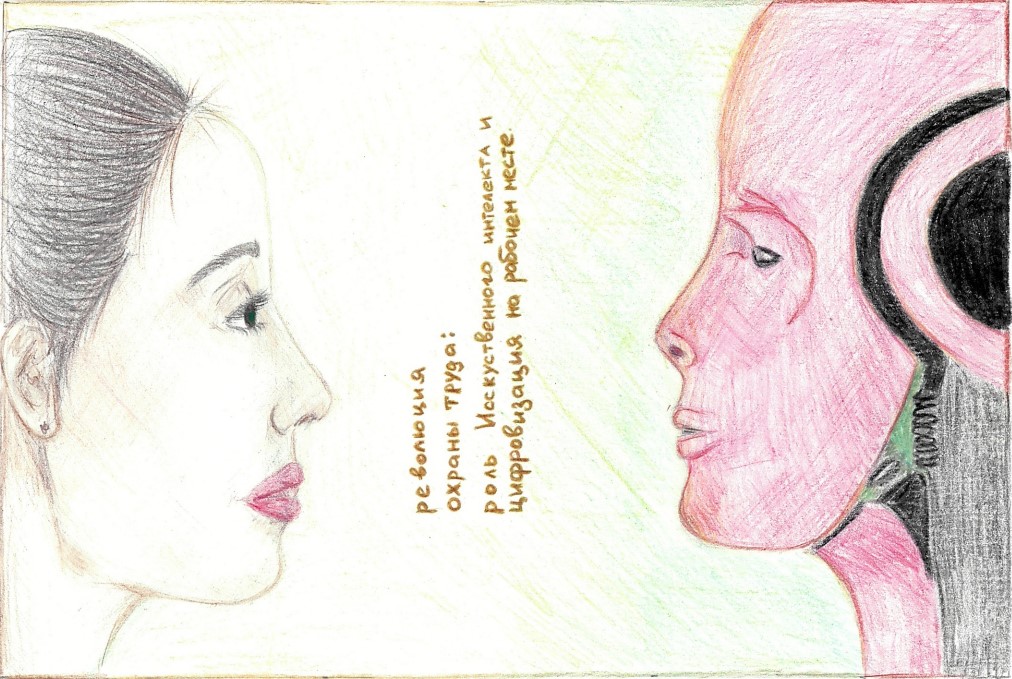 революция
охраны труда:
роль Исскуственного интелекта и
цифровизация на рабочем месте.